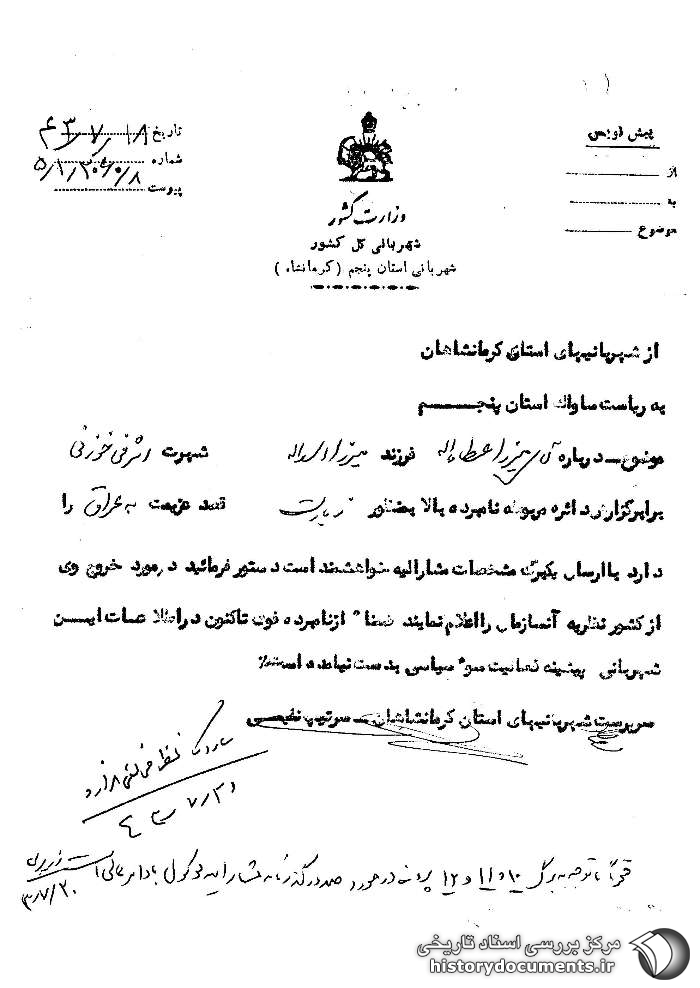 پیش نویس
از
به
موضوع
تاریخ ۴۳/۷/۱۸
شماره ۵/۱/۳۰۶۰۸
پیوست
وزارت کشور
شهربانی کل کشور
شهربانی استان پنجم (کرمانشاه)
از شهربانیهای استان کرمانشاهان
به ریاست ساواک استان پنجم
موضوع درباره آقای میرزا عطاءاله فرزند میرزا اسداله شهرت اشرفی
برابر گزارش دائره مربوطه نامبرده بالا بمنظور زیارت قصد عزیمت به عراق را
دارد با ارسال یکبرگ مشخصات مشارالیه خواهشمند است دستور فرمائید در مورد خروج وی
از کشور نظریه آنسازمان را اعلام نمایند ضمناً از نامبرده فوق تاکنون در اطلاعات این
شهربانی پیشینه فعالیت سوء سیاسی بدست نیامده است٪
سرپرست شهربانیهای استان کرمانشاهان - سرتیپ نفیسی
۴۳/۷/۲۰
توجه به برگ ۱۰ و ۱۱ و ۱۲ پرونده در مورد صدور گذرنامه مشارالیه موکول بامر عالی است
۳/۷/۲۰
مرکز بررسی اسناد تاریخی
historydocuments.ir